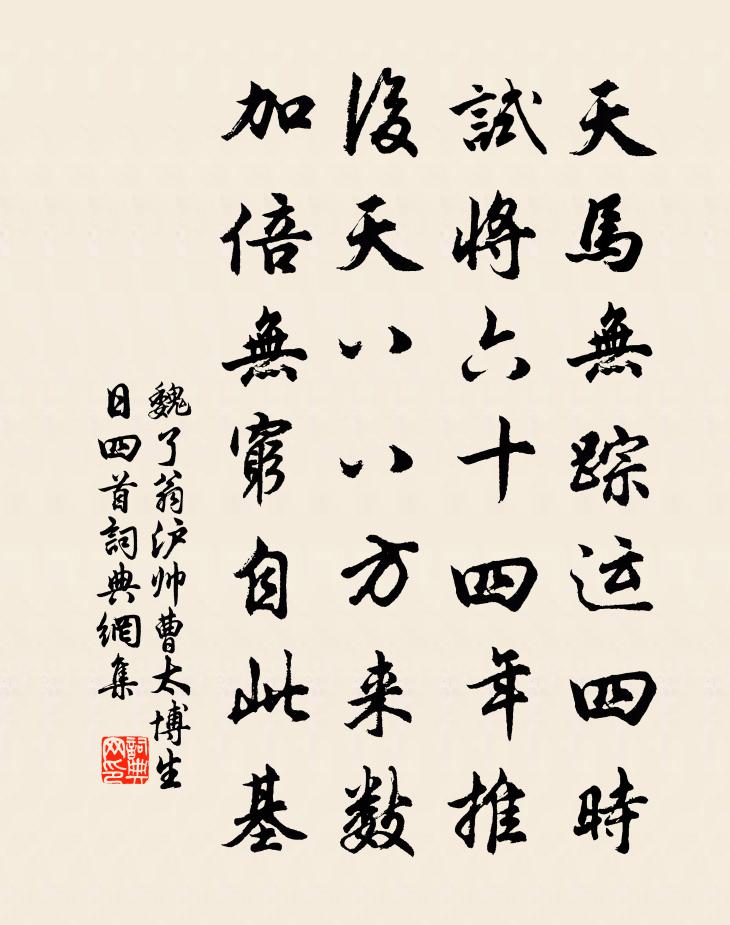 天馬無踪运四時
試將六十四年推
後天八八方来数
加倍無窮自此基
魏了翁沪帅曹太博生
日四首詞典網集
詞典
网印